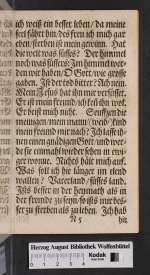 ich weiß ein besser leben / da meine
seel fährt hin / des freu ich mich gar
eben / sterben ist mein gewinn. Hat
die welt was süsses? Der himmel
noch was süssers: Im himmel wer-
den wir haben / O Gott / wie grosse
gaben. Ist der tod bitter? Ach nein.
Mein Jesus hat ihn mir versüsset.
Er ist mein freund / ich leb ihn vor.
Er heist mich nicht. Seuffzen die
meinigen / mein mann / weib / kind
mein freund mir nach? Ich lasse ih-
nen einen gnädigen Gott / und wer-
de sie einmahl wieder sehen in ewi-
ger wonne. Nichts hält mich auf.
Was soll ich hie länger im elend
wallen? Vaterland / süsses land.
Ists besser in der heymath als in
der frembde zu seyn / so ists mir bes-
ser zu sterben als zu leben. Ich hab
N 5
hie
Herzog August Bibliothek Wolfenbüttel
Kodak